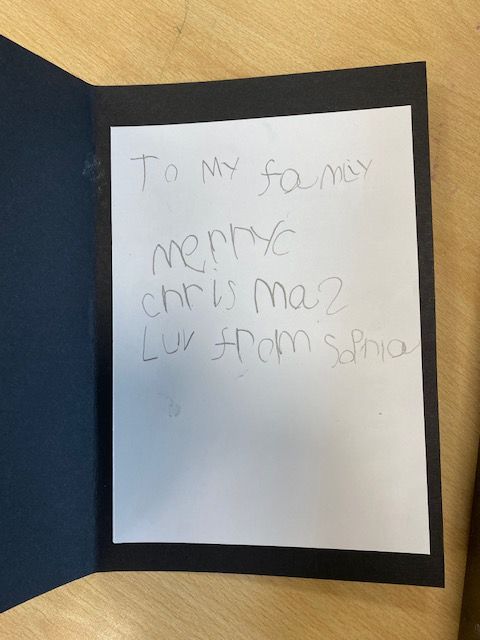 To MY family
merryc
chris mas
Luv from Sophia